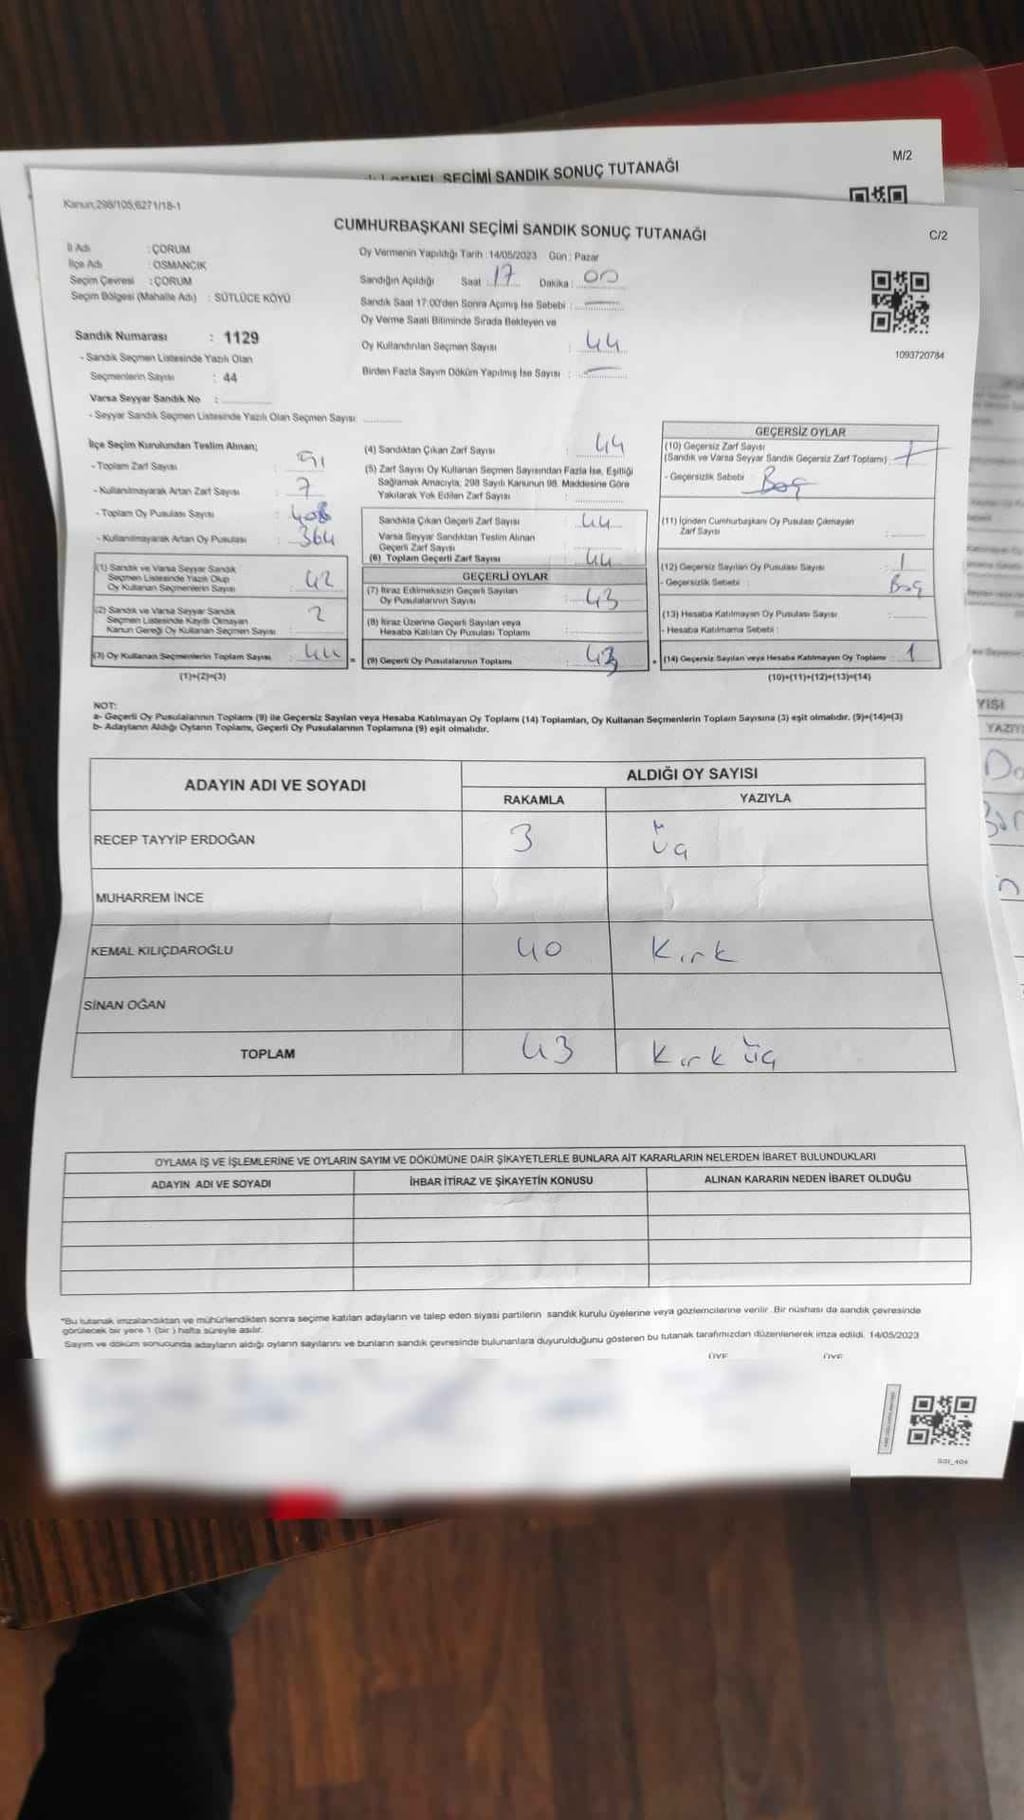 GENEL SEÇİMİ SANDIK SONUÇ TUTANAĞI
M/2
Kanun;298/105;6271/18-1
CUMHURBAŞKANI SEÇİMİ SANDIK SONUÇ TUTANAĞI
C/2
İl Adı : ÇORUM
İlçe Adı : OSMANCIK
Seçim Çevresi : ÇORUM
Seçim Bölgesi (Mahalle Adı) : SÜTLÜCE KÖYÜ
Oy Vermenin Yapıldığı Tarih : 14/05/2023 Gün : Pazar
Sandığın Açıldığı Saat : 17 Dakika : 00
Sandık Saat 17:00'den Sonra Açımış İse Sebebi : —
Oy Verme Saati Bitiminde Sırada Bekleyen ve
Oy Kullandırılan Seçmen Sayısı : 44
Birden Fazla Sayım Döküm Yapılmış İse Sayısı : —
1093720784
Sandık Numarası : 1129
- Sandık Seçmen Listesinde Yazılı Olan
Seçmenlerin Sayısı : 44
Varsa Seyyar Sandık No :
- Seyyar Sandık Seçmen Listesinde Yazılı Olan Seçmen Sayısı
İlçe Seçim Kurulundan Teslim Alınan;
- Toplam Zarf Sayısı : 91
- Kullanılmayarak Artan Zarf Sayısı : 7
- Toplam Oy Pusulası Sayısı : 408
- Kullanılmayarak Artan Oy Pusulası : 364
(1) Sandık ve Varsa Seyyar Sandık
Seçmen Listesinde Yazılı Olup
Oy Kullanan Seçmenlerin Sayısı : 42
(2) Sandık ve Varsa Seyyar Sandık
Seçmen Listesinde Kayıtlı Olmayan
Kanun Gereği Oy Kullanan Seçmen Sayısı : 2
(3) Oy Kullanan Seçmenlerin Toplam Sayısı : 44
(1)+(2)=(3)
(4) Sandıktan Çıkan Zarf Sayısı : 44
(5) Zarf Sayısı Oy Kullanan Seçmen Sayısından Fazla İse, Eşitliği
Sağlamak Amacıyla; 298 Sayılı Kanunun 98. Maddesine Göre
Yakılarak Yok Edilen Zarf Sayısı :
Sandıkta Çıkan Geçerli Zarf Sayısı : 44
Varsa Seyyar Sandıktan Teslim Alınan
Geçerli Zarf Sayısı :
(6) Toplam Geçerli Zarf Sayısı : 44
GEÇERLİ OYLAR
(7) İtiraz Edilmeksizin Geçerli Sayılan
Oy Pusulalarının Sayısı : 43
(8) İtiraz Üzerine Geçerli Sayılan veya
Hesaba Katılan Oy Pusulası Toplamı :
(9) Geçerli Oy Pusulalarının Toplamı : 43
GEÇERSİZ OYLAR
(10) Geçersiz Zarf Sayısı
(Sandık ve Varsa Seyyar Sandık Geçersiz Zarf Toplamı) :
- Geçersizlik Sebebi : Boş
(11) İçinden Cumhurbaşkanı Oy Pusulası Çıkmayan
Zarf Sayısı :
(12) Geçersiz Sayılan Oy Pusulası Sayısı : 1
- Geçersizlik Sebebi : Boş
(13) Hesaba Katılmayan Oy Pusulası Sayısı :
- Hesaba Katılmama Sebebi :
(14) Geçersiz Sayılan veya Hesaba Katılmayan Oy Toplamı : 1
(10)+(11)+(12)+(13)=(14)
NOT:
a- Geçerli Oy Pusulalarının Toplamı (9) ile Geçersiz Sayılan veya Hesaba Katılmayan Oy Toplamı (14) Toplamları, Oy Kullanan Seçmenlerin Toplam Sayısına (3) eşit olmalıdır. (9)+(14)=(3)
b- Adayların Aldığı Oyların Toplamı, Geçerli Oy Pusulalarının Toplamına (9) eşit olmalıdır.
ADAYIN ADI VE SOYADI ALDIĞI OY SAYISI
RAKAMLA YAZIYLA
RECEP TAYYİP ERDOĞAN 3 üç
MUHARREM İNCE
KEMAL KILIÇDAROĞLU 40 Kırk
SİNAN OĞAN
TOPLAM 43 Kırk üç
OYLAMA İŞ VE İŞLEMLERİNE VE OYLARIN SAYIM VE DÖKÜMÜNE DAİR ŞİKAYETLERLE BUNLARA AİT KARARLARIN NELERDEN İBARET BULUNDUKLARI
ADAYIN ADI VE SOYADI İHBAR İTİRAZ VE ŞİKAYETİN KONUSU ALINAN KARARIN NEDEN İBARET OLDUĞU
*Bu tutanak imzalandıktan ve mühürlendikten sonra seçime katılan adayların ve talep eden siyasi partilerin sandık kurulu üyelerine veya gözlemcilerine verilir. Bir nüshası da sandık çevresinde
görülecek bir yere 1 (bir) hafta süreyle asılır.
Sayım ve döküm sonucunda adayların aldığı oyların sayılarını ve bunların sandık çevresinde bulunanlara duyurulduğunu gösteren bu tutanak tarafımızdan düzenlenerek imza edildi. 14/05/2023
ÜYE ÜYE